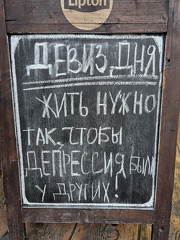 Lipton
ДЕВИЗ ДНЯ
ЖИТЬ НУЖНО
ТАК, ЧТОБЫ
ДЕПРЕССИЯ БЫЛА
У ДРУГИХ!